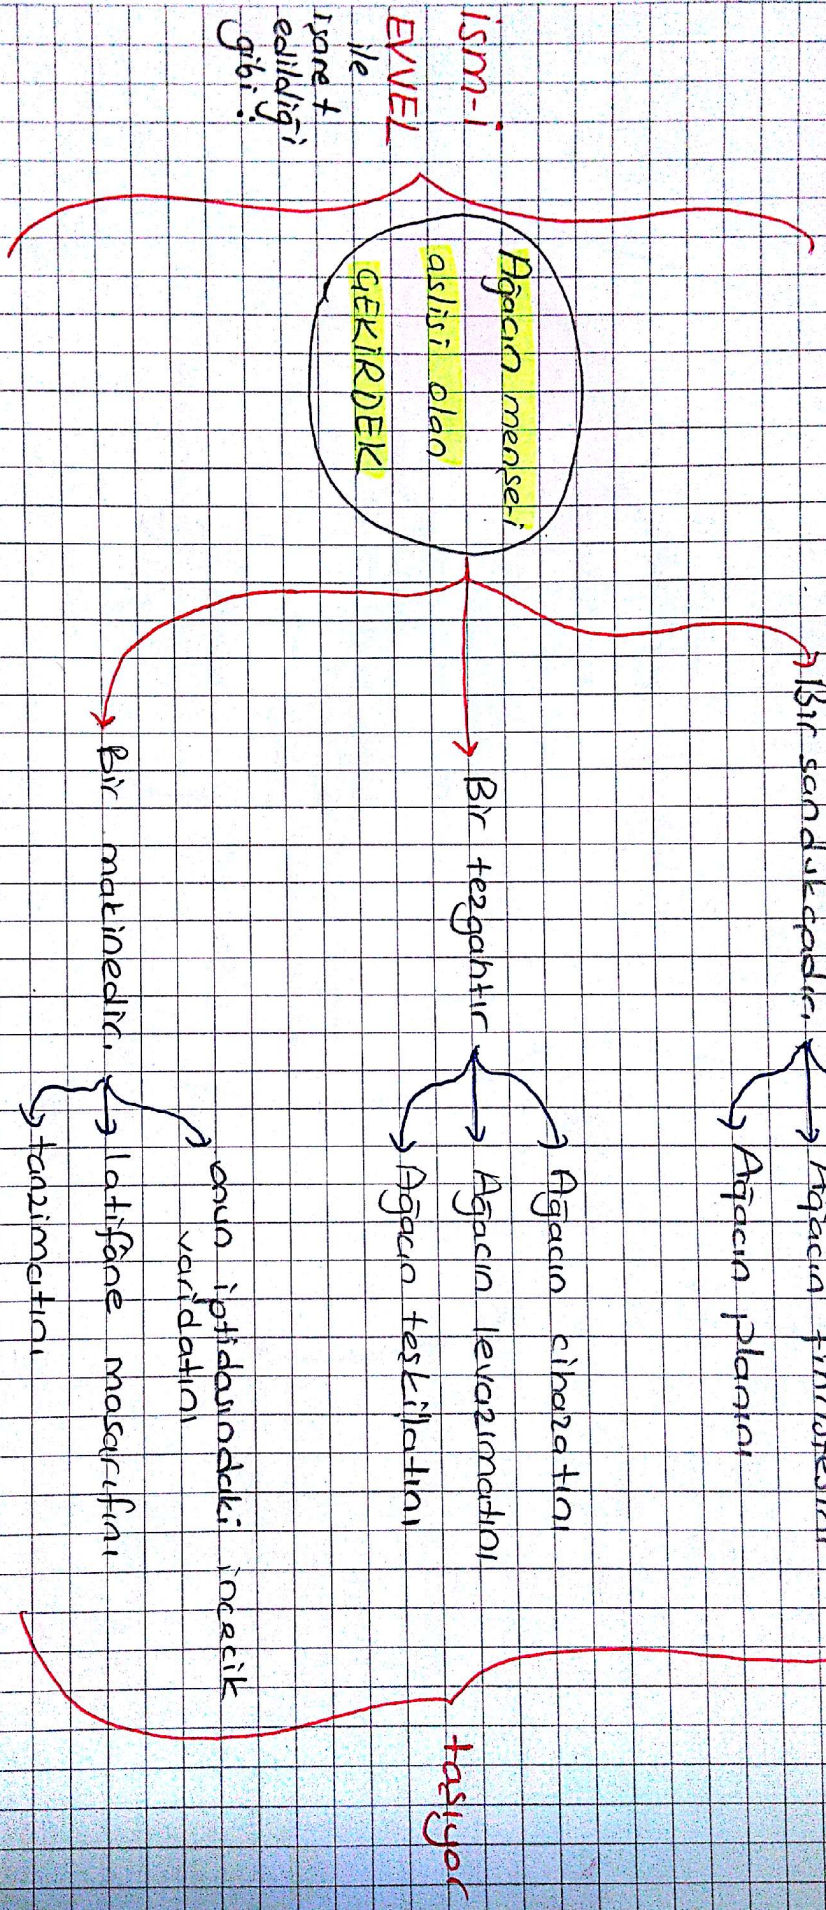 ism-i
EVVEL
ile
işaret
edildiği
gibi:
Ağacın menşe-i
aslisi olan
ÇEKİRDEK
Bir sandukçadır.
Ağacın
Ağacın planını
Bir tezgahtır
Ağacın cihazatını
Ağacın levazımatını
Ağacın teşkilatını
Bir makinedir.
onun iptidasındaki incecik
varidatını
latifâne masarıfını
tanzimatını
taşıyor